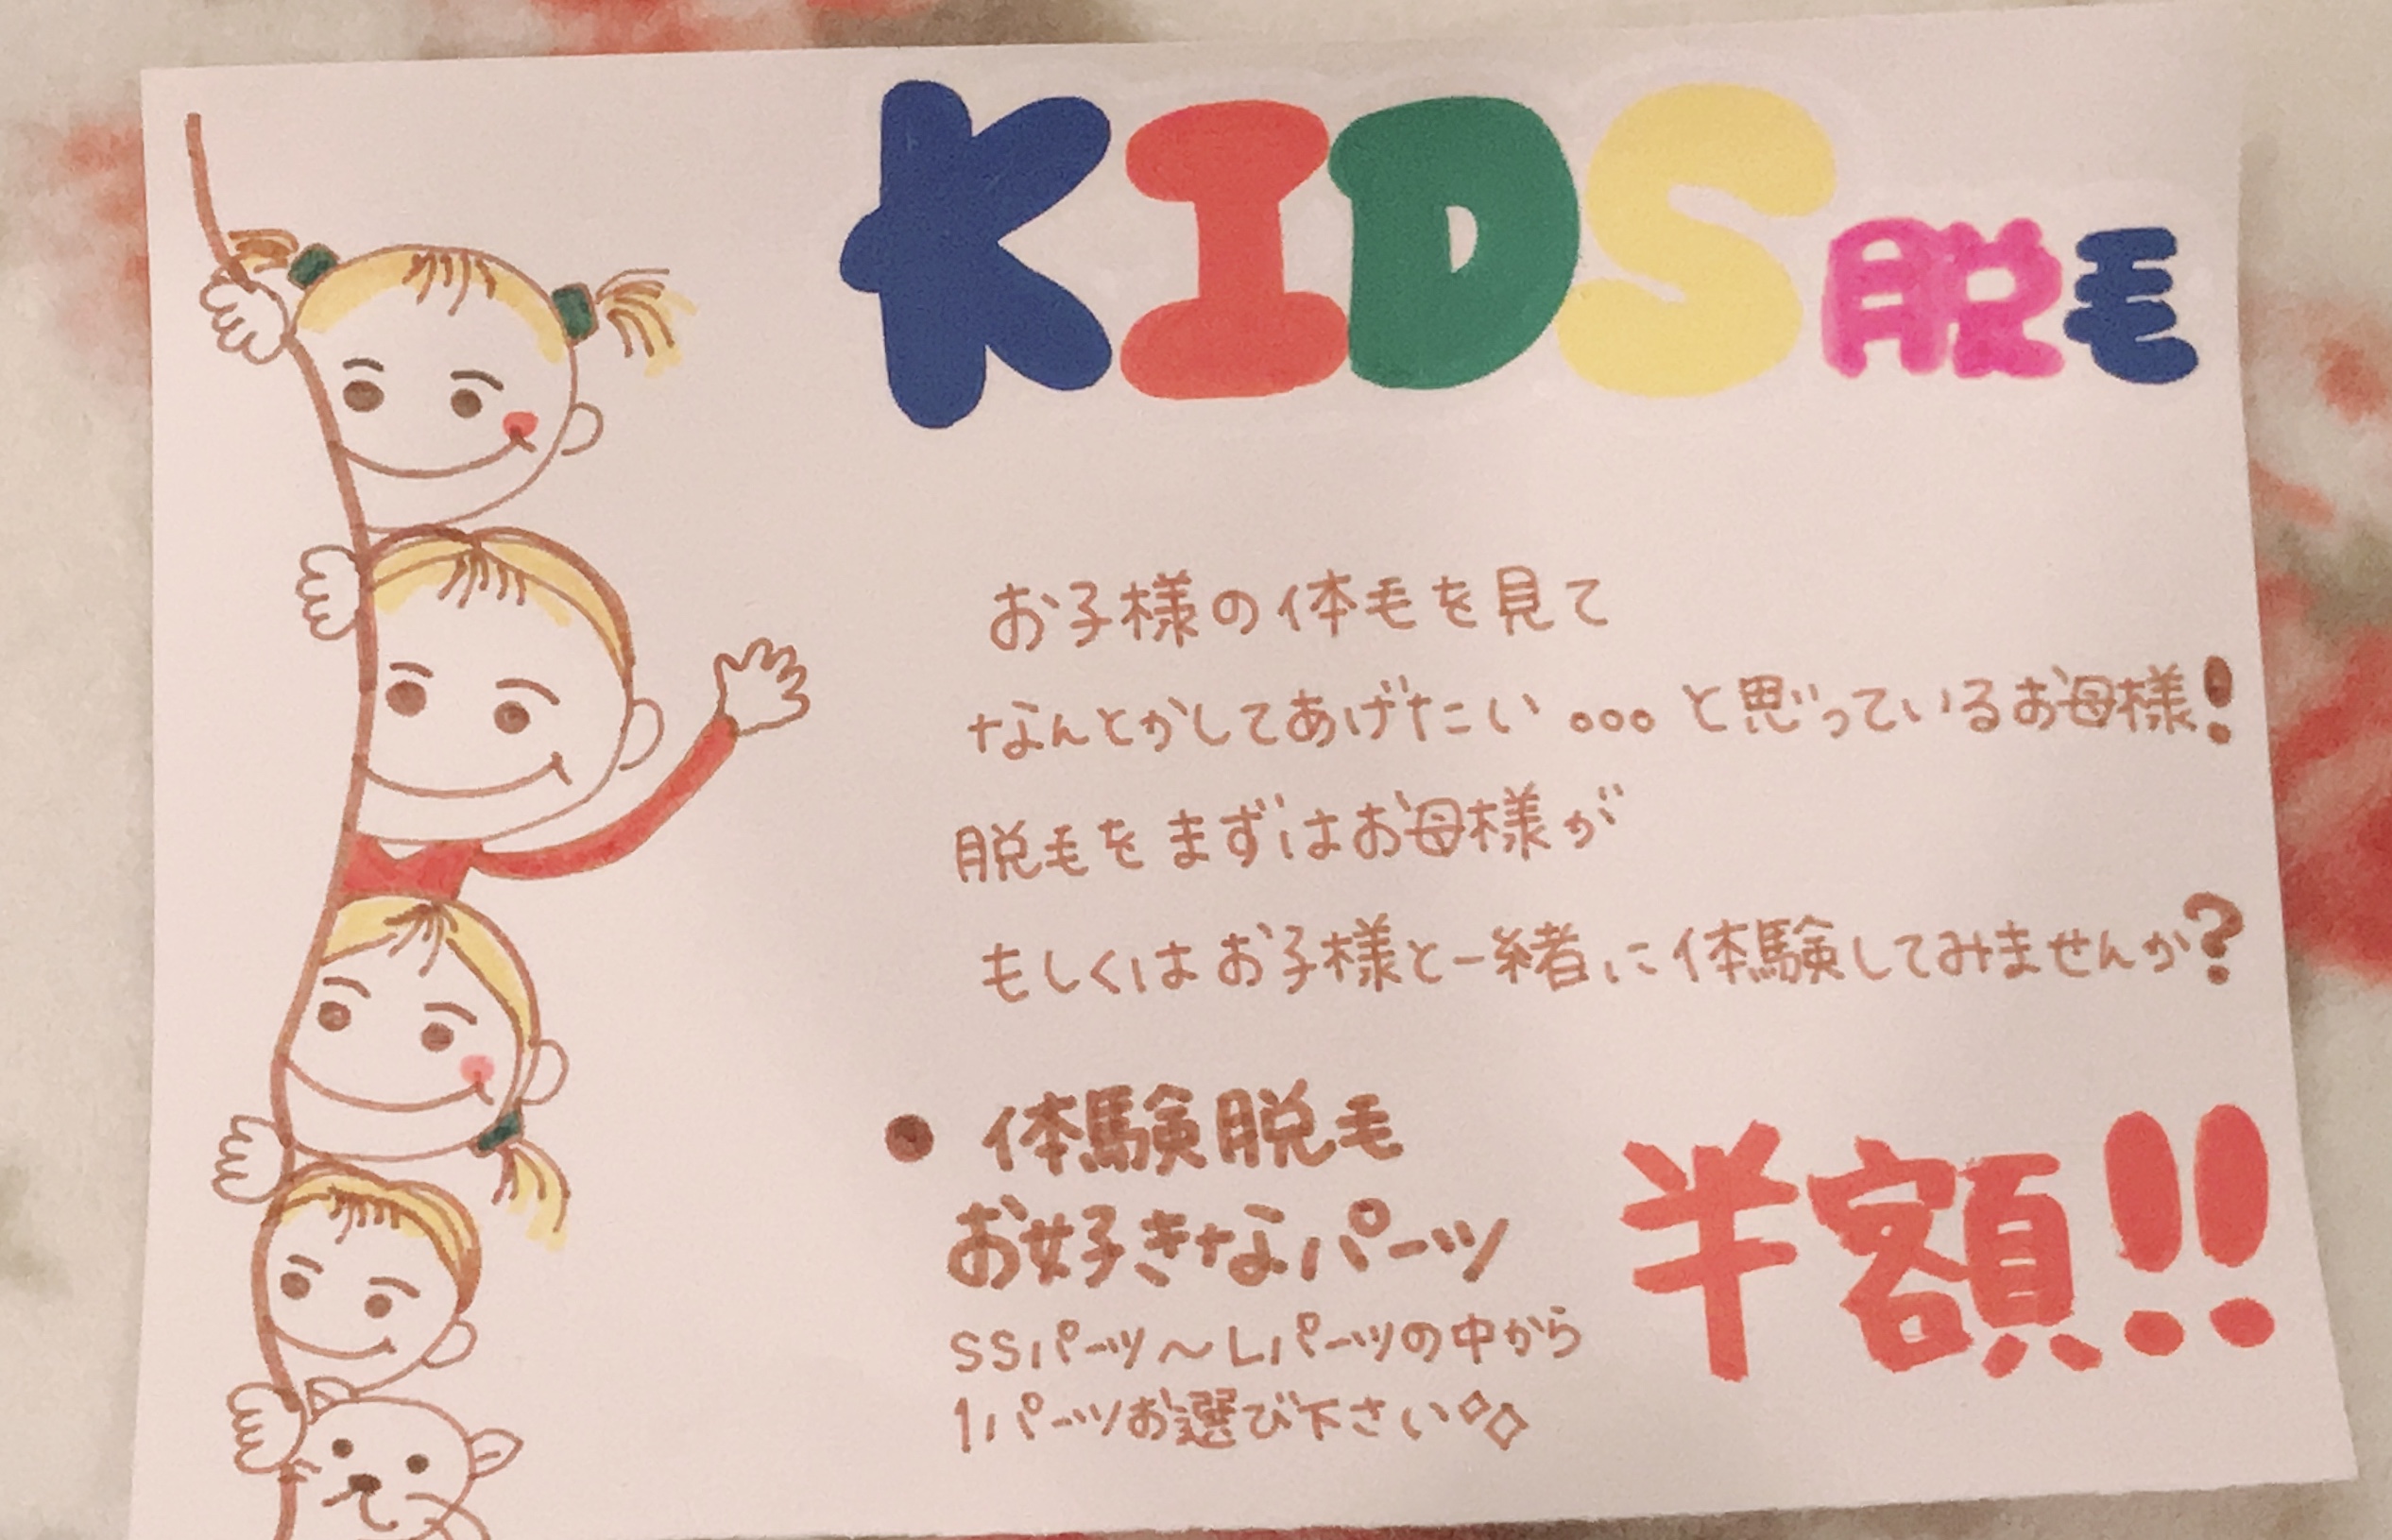 KIDS脱毛
お子様の体毛を見て
なんとかしてあげたい。。。と思っているお母様!
脱毛をまずはお母様が
もしくはお子様と一緒に体験してみませんか?
● 体験脱毛
お好きなパーツ
半額!!
SSパーツ～Lパーツの中から
1パーツお選び下さい